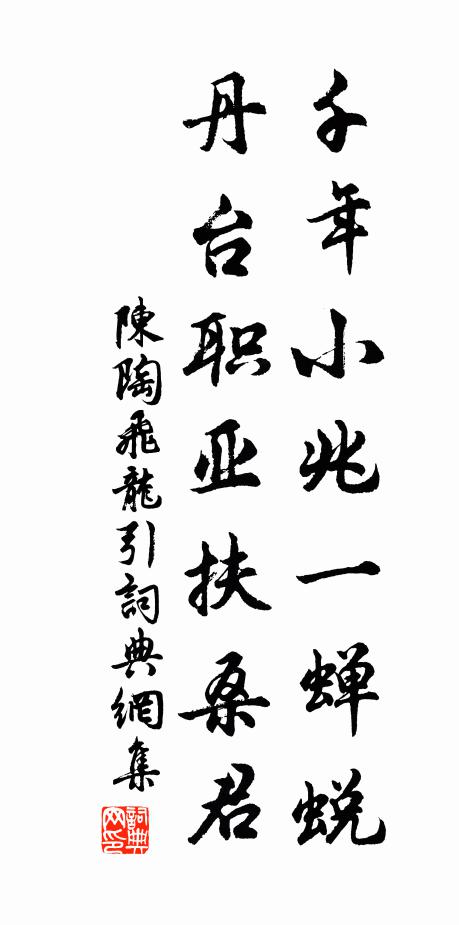 千年小兆一蝉蜕
丹台职亚扶桑君
陳陶飛龍引詞典網集
詞典网印